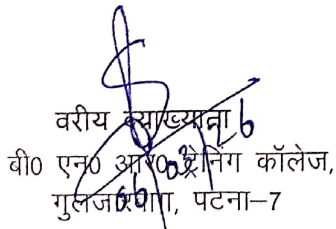 वरीय व्याख्याता
बी0 एन0 आर0 ट्रेनिंग कॉलेज,
गुलजारबाग, पटना–7